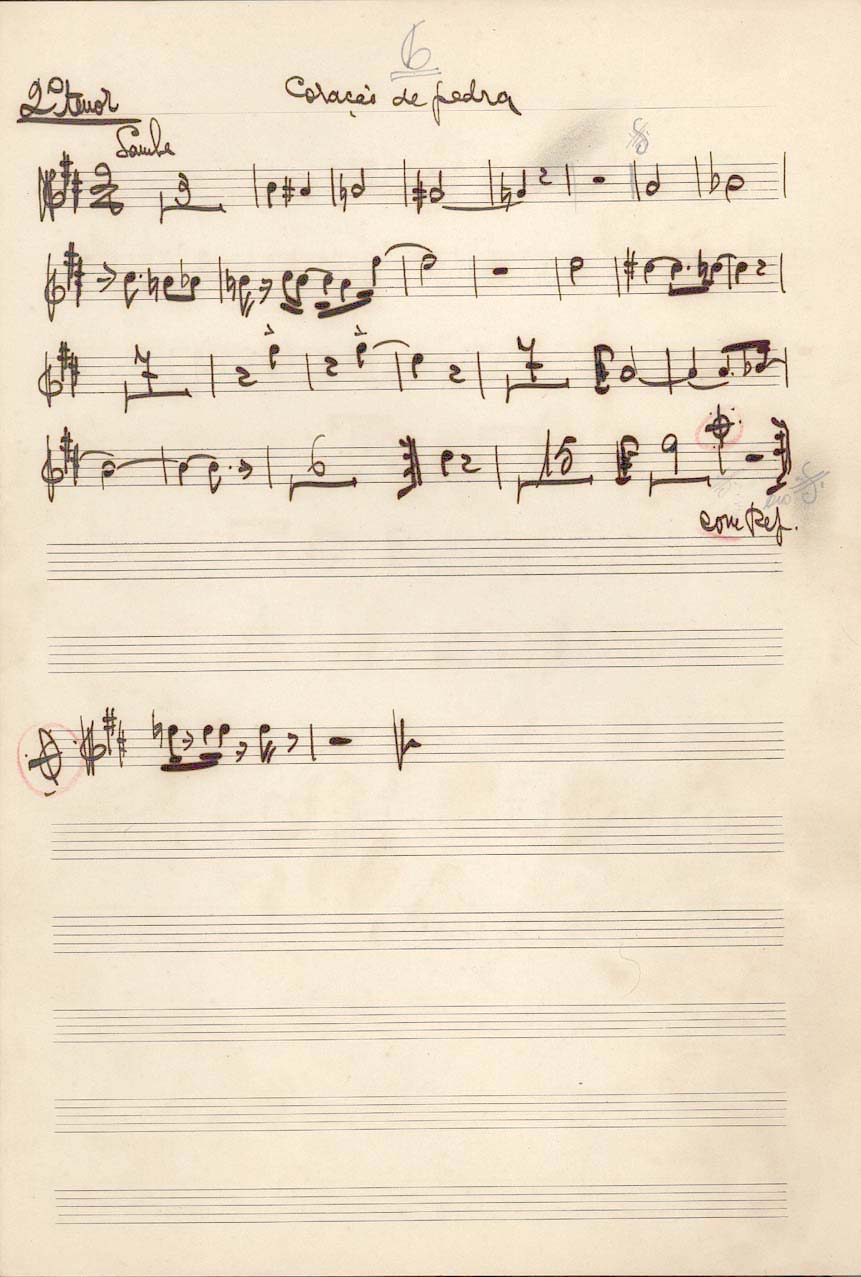 6
2º tenor
Coração de pedra
Samba
2
3
7
7
6
15
9
ao
com Rep.